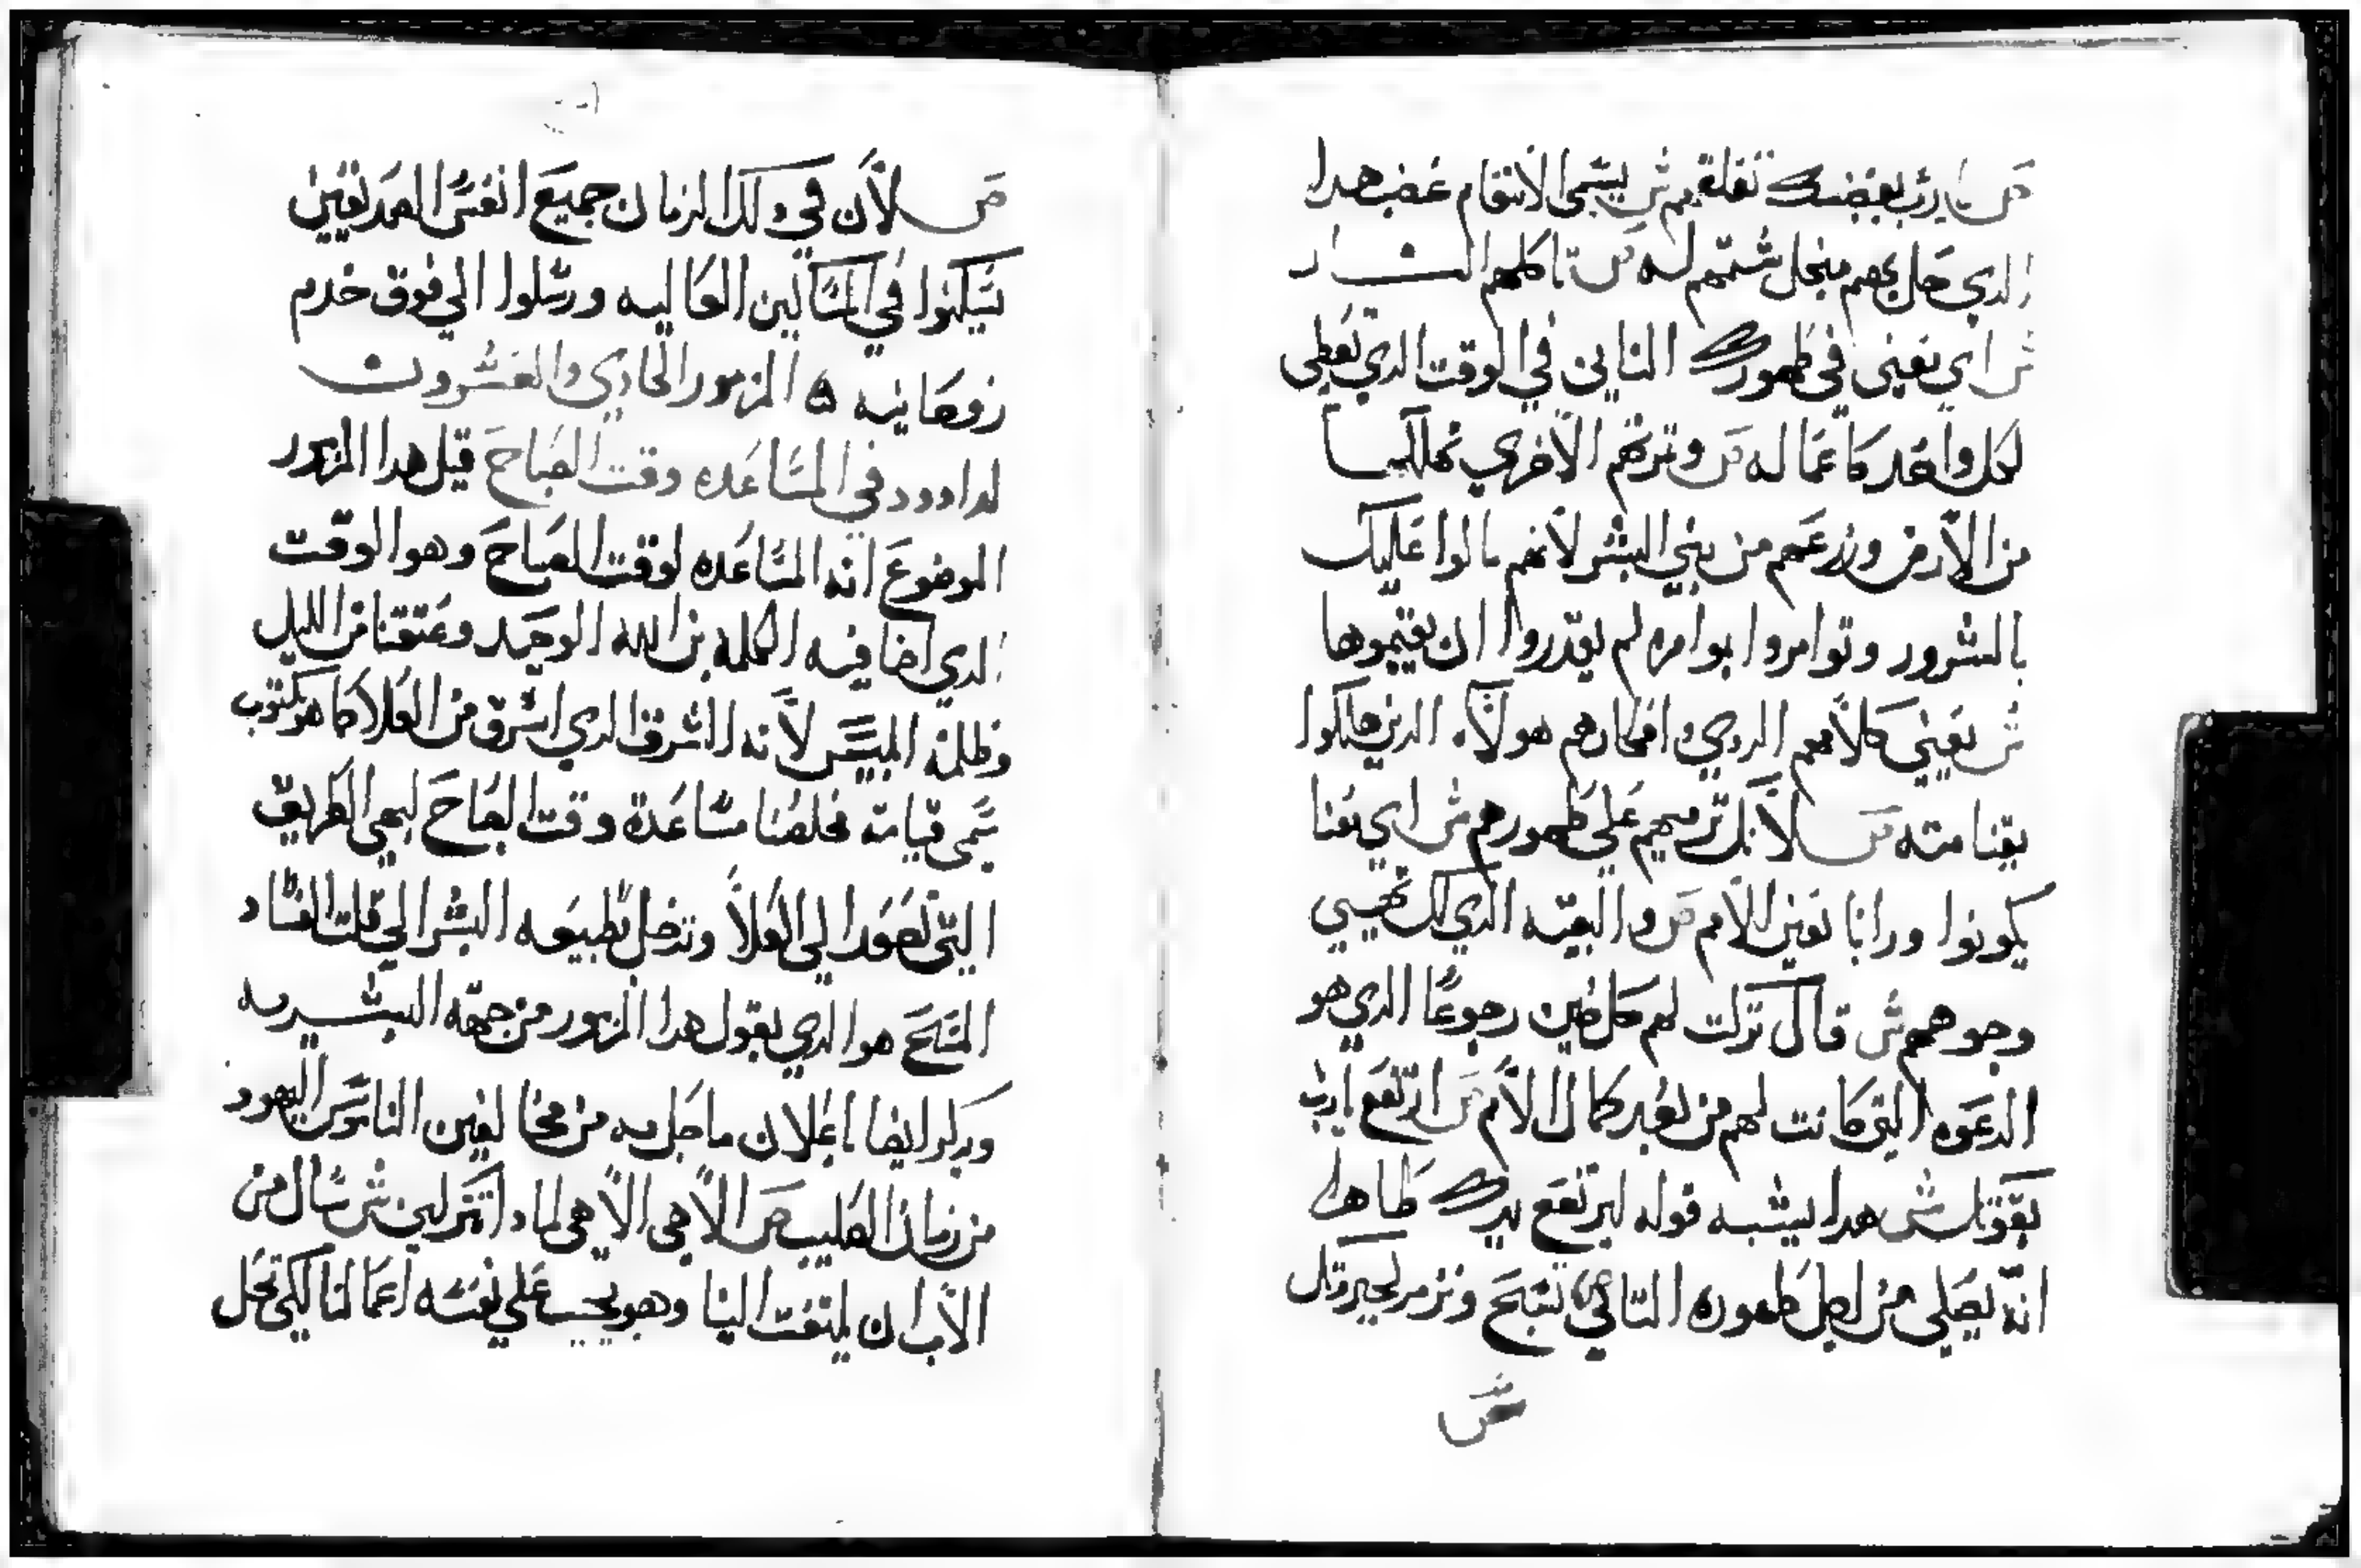 ص يا رب بغضبك تقلقهم ش يسمي الانتقام غضب هدا
الدي حل بهم منجل شتمهم له ص تاكلهم النار
ش اي يعني في ظهورك الثاني في الوقت الدي يعطي
لكل واحد كاعماله ص وثمرتهم الاخري تهلكها
من الارض وزرعهم من بني البشر لانهم مالوا عليك
بالشرور وتوامروا بوامره لم يقدروا ان يقيموها
ش يعني كلامهم الردي وافكارهم هولاء الدين هلكوا
بقتا مته ص لانك ترميهم علي ظهورهم ش اي يعنا
يكونوا ورانا نعني الامم ص والبقيه الدي لك تهيي
وجوههم ش قال تركت لهم كل حين رجوعا الدي هو
الدعوه التي كانت لهم من بعد كمال الامم ص ارتفع يا رب
بقوتك ش هدا يشبه قوله لترتفع يدك طاهرا
انه يصلي من اجل ظهوره التاني ص نسبح ونزمر لجبروتك
ش
ص لان في دلك الزمان جميع انفس الصديقين
يسكنوا في المساكن العاليه ورسلوا الي فوق خدم
روحانيه ه المزمور الحادي والعشرون
لداوود في المساعده وقت الصباح قيل هدا المزمور
الموضوع انه المساعده لوقت الصباح وهو الوقت
الدي اضا فيه الكلمه بن الله الوحيد وعتقنا من الليل
وظلمة ابليس لانه المشرق الدي اشرق من العلا كما هو مكتوب
سمي قيامة مخلصنا مساعدة وقت الصباح لبهي الطريق
التي تصعد الي العلا وتدخل بطبيعه البشر الي قلت الفساد
المسيح هو الدي يقول هدا المزمور من جهة البشريه
وبدلك ايضا اعلان ما حل به من مخالفين الناموس اليهود
من زمان الصليب ص الاهي الاهي لمادا تتركني ش سال من
الاب ان يلتفت الينا وهو يحسب علي نفسه اعمالنا لكي تحل